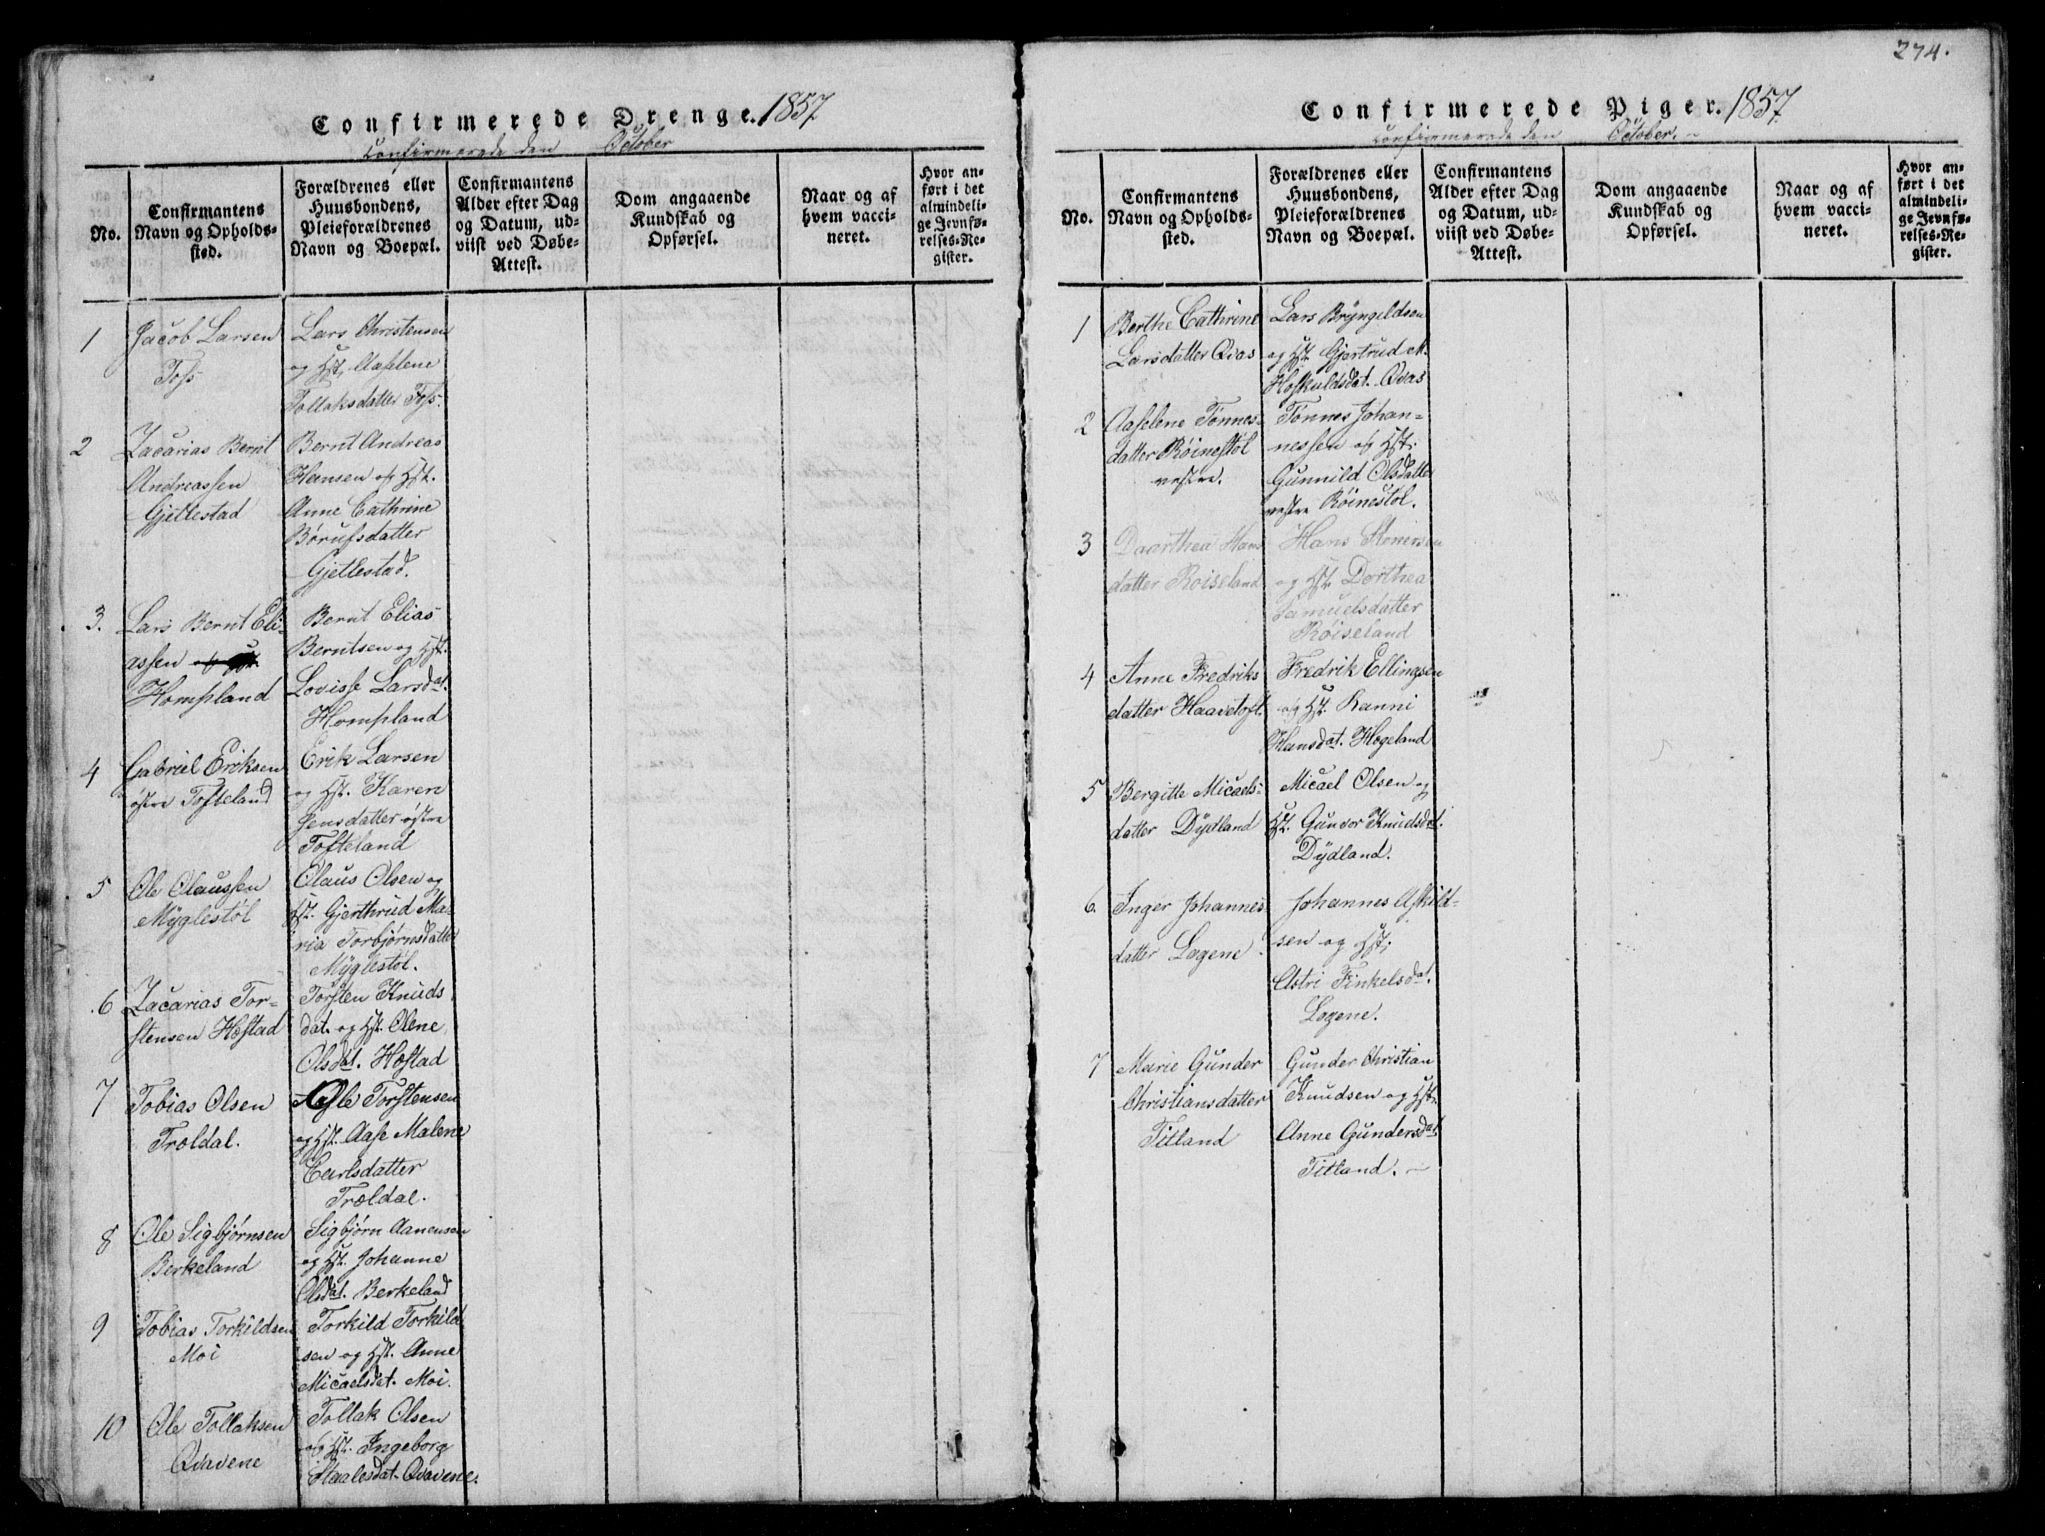 Confirmerede Drenge. 1857
Confirmerede den October
No.
Confirmantens Navn og Opholds-sted.
Forældrenes eller Huusbondens, Pleieforældrenes Navn og Boepæl.
Confirmantens Alder efter Dag og Datum, ud-viist ved Døbe-Attest.
Dom angaaende Kundskab og Opførsel.
Naar og af hvem vacci-neret.
Hvor an-ført i det almindeli-ge Jevnfø-relses-Re-gister.
1
Jacob Larsen
Foss
Lars Christensen
og Hst. Aaslene
Tollaksdatter Foss.
2
Zacarias Bernt
Andreassen
Gjellestad
Bernt Andreas
Hansen og Hst.
Anne Cathrine
Børufsdatter
Gjellestad.
3.
Lars Bernt Eli-
assen
Hompland
Bernt Elias
Berntsen og Hst.
Lovisse Larsdat.
Hompland
4
Gabriel Eriksen
østre Tofteland
Erik Larsen
og Hst. Karen
Jensdatter østre
Tofteland
5
Ole Olaussen
Myglestøl
Olaus Olsen og
Hst. Gjerthrud Ma-
ria Torbjørnsdatter
Myglestøl.
6
Zacarias Tor-
stensen Hæstad
Torsten Knuds
dat. og Hst. Olene
Olsdat. Hæstad
7
Tobias Olsen
Trældal.
Ole Torstensen
og Hst. Aase Malene
Carlsdatter
Trældal.
8
Ole Sigbjørnsen
Berkeland
Sigbjørn Aanensen
og Hst. Johanne
Olsdat. Berkeland
9
Tobias Torkildsen
Moi
Torkild Torkild
sen og Hst. Anne
Micaelsdat. Moi.
10
Ole Tollaksen
Qvavene
Tollak Olsen
og Hst. Ingeborg
Staalesdat. Qvavene.
274.
Confirmerede Piger. 1857
Confirmerede den October.
No.
Confirmantens Navn og Opholds-sted.
Forældrenes eller Huusbondens, Pleieforældrenes Navn og Boepæl.
Confirmantens Alder efter Dag og Datum, ud-viist ved Døbe-Attest.
Dom angaaende Kundskab og Opførsel.
Naar og af hvem vacci-neret.
Hvor an-ført i det almindeli-ge Jevnfø-relses-Re-gister.
1
Berthe Cathrine
Larsdatter Qvas
Lars Bryngeldsen
og Hst. Gjertrud M.
Hoskuldsdat. Qvas
2
Aaselene Tønnes-
datter Røinestøl
vestre.
Tønnes Johan-
nessen og Hst.
Gunnild Olsdatter
vestre Røinestøl.
3
Daarthea Hans
datter Roiseland
Hans
og Hst. Dorthea
Samuelsdatter
Røiseland
4
Anne Fredriks
datter Haavetoft.
Fredrik Ellingsen
og Hst. Kanni
Hansdat. Hægeland
5
Bergitte Micaels-
datter Dydland
Micael Olsen og
Hst. Gunvor Knudsdat.
Dydland.
6.
Inger Johannes-
datter Lagene
Johannes Askild-
sen og Hst.
Astri Finkelsdat.
Lagene.
7
Marie Gunder
Christiansdatter
Titland
Gunder Christian
Knudsen og Hst.
Anne Gundersdat
Titland.